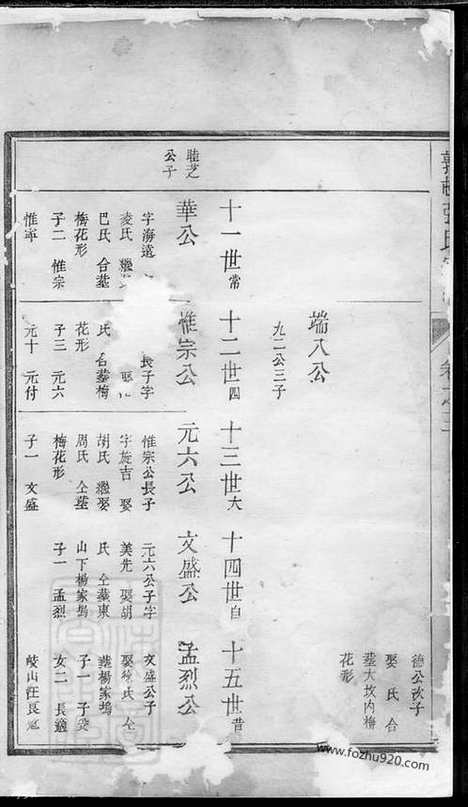 張氏
卷之三
端八公
九二公三子
德公次子
娶 氏 合
葬大坎內梅
花形
十一世常
十二世四
十三世大
十四世自
十五世昔
睦芝
公子
華公
字海遠
凌氏 繼
巴氏 合墓
梅花形
子二 惟宗
惟寧
惟宗公
長子字
氏 合墓梅
花形
子三 元六
元十 元付
元六公
惟宗公長子
字旋吉 娶
胡氏 繼娶
周氏 仝墓
梅花形
子一 文盛
文盛公
元六公子字
美先 娶胡
氏 仝墓東
山下楊家塢
子一 孟烈
孟烈公
文盛公子
娶徐氏 仝
葬楊家塢
子一 子癸
女二 長適
岐山汪長
www.fozhu920.com